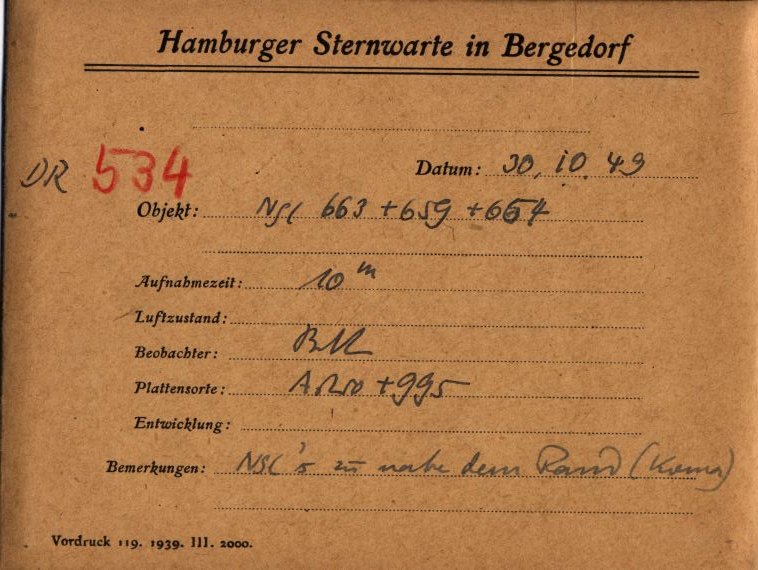 Hamburger Sternwarte in Bergedorf
DR 534
Datum: 30. 10. 49
Objekt: NGC 663 + 659 + 654
Aufnahmezeit: 10 m
Luftzustand:
Beobachter:
Plattensorte: + 995
Entwicklung:
Bemerkungen: NGC's zu nahe dem Rand (Koma)
Vordruck 119. 1939. III. 2000.